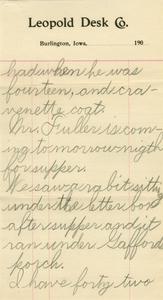 Leopold Desk Co.
Burlington, Iowa, 190
had when he was
fourteen, and cra-
venette coat.
Mr. Fuller is com
ing tomorrow nigth
for supper.
We saw a rabit sitting
under the letter box
after supper and it
ran under Gafford
porch.
I have forty two